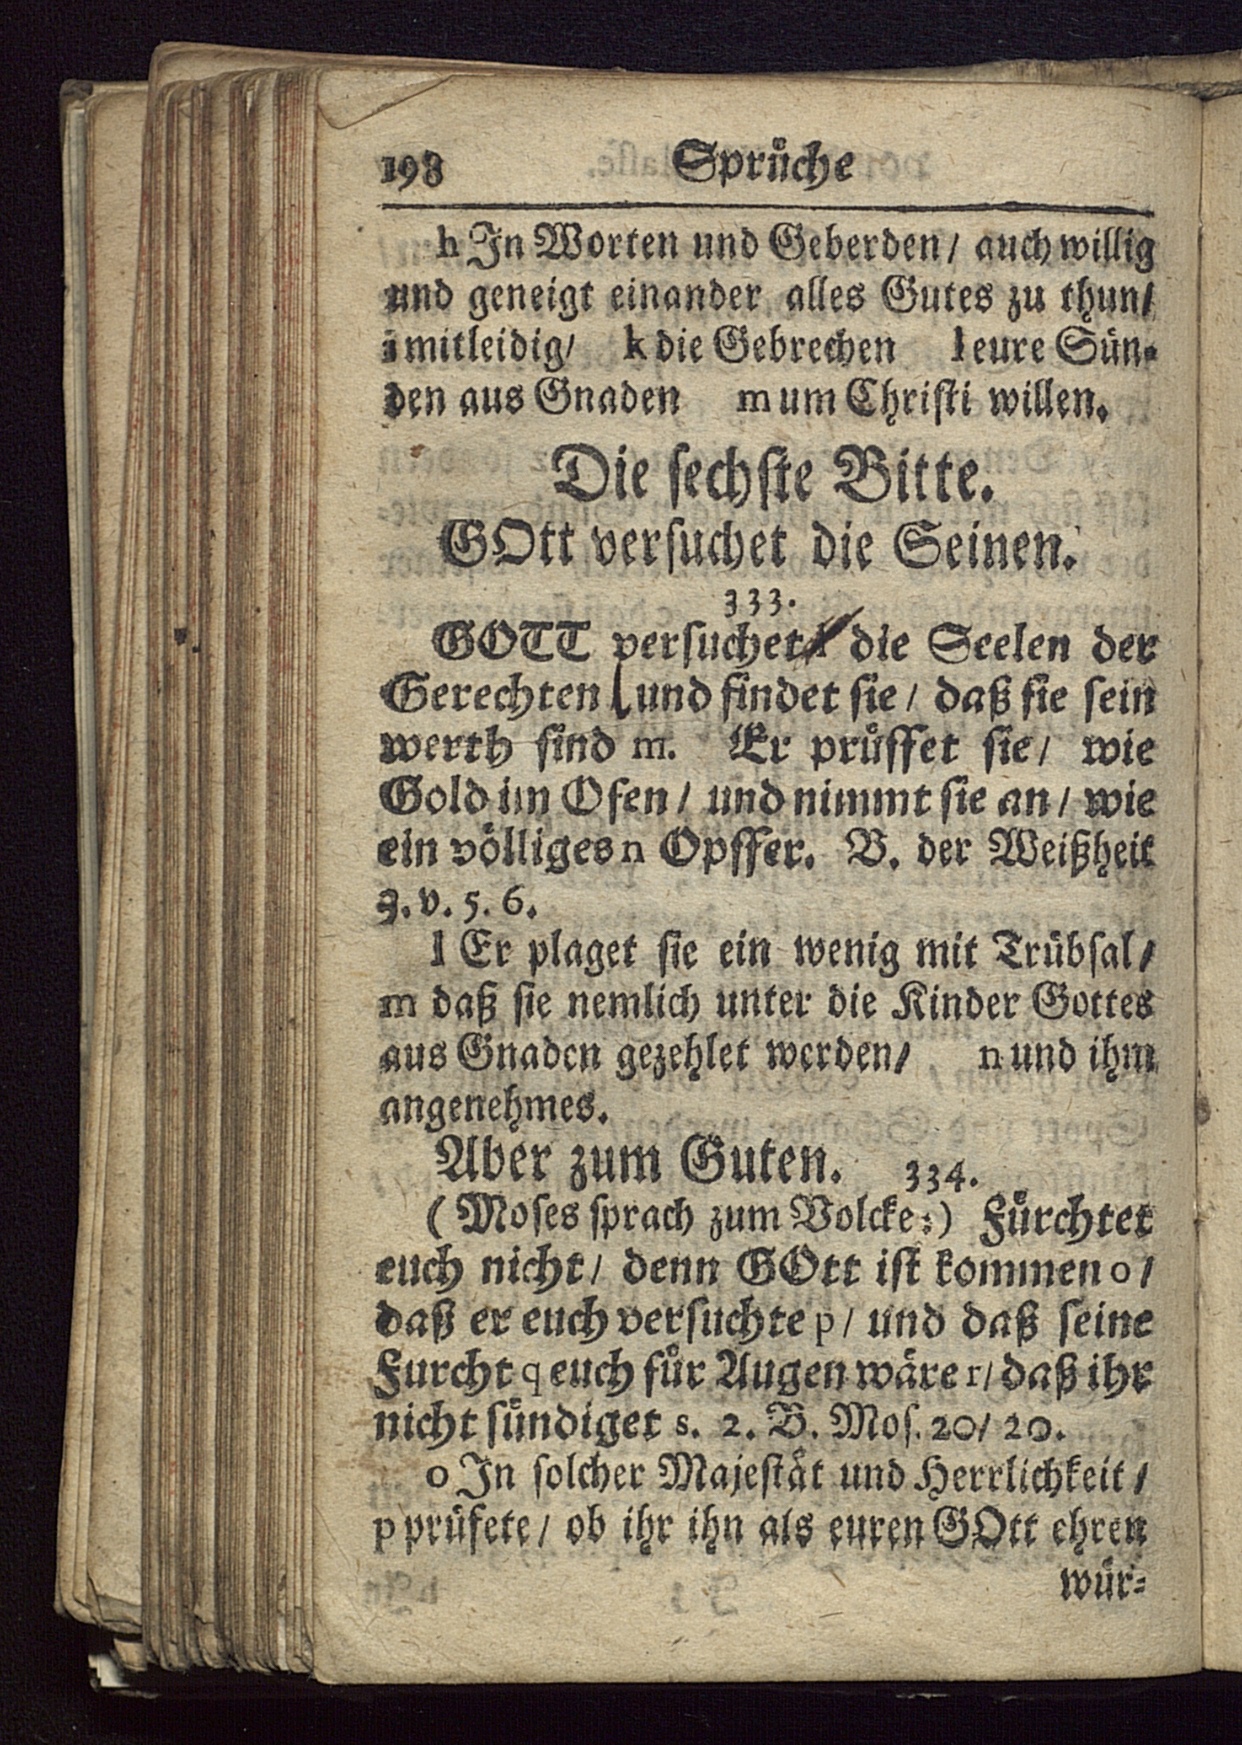 198 Sprüche
h In Worten und Geberden / auch willig
und geneigt einander alles Gutes zu thun /
i mitleidig / k die Gebrechen l eure Sün-
den aus Gnaden m um Christi willen.
Die sechste Bitte.
GOtt versuchet die Seinen.
333.
GOTT versuchet l die Seelen der
Gerechten / und findet sie / daß sie sein
werth sind m. Er prüffet sie / wie
Gold im Ofen / und nimmt sie an / wie
ein völliges n Opffer. B. der Weißheit
3. v. 5. 6.
l Er plaget sie ein wenig mit Trübsal /
m daß sie nemlich unter die Kinder Gottes
aus Gnaden gezehlet werden / n und ihm
angenehmes.
Aber zum Guten. 334.
( Moses sprach zum Volcke: ) Fürchtet
euch nicht / denn GOtt ist kommen o /
daß er euch versuchte p / und daß seine
Furcht q euch für Augen wäre r / daß ihr
nicht sündiget s. 2. B. Mos. 20 / 20.
o In solcher Majestät und Herrlichkeit /
p prüfete / ob ihr ihn als euren GOtt ehren
wür-